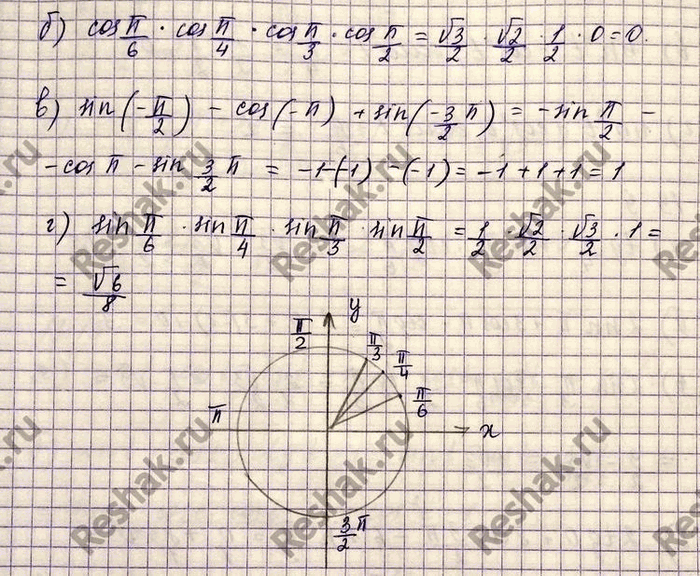 б) cos π/6 · cos π/4 · cos π/3 · cos π/2 = √3/2 · √2/2 · 1/2 · 0 = 0.
в) sin(-π/2) - cos(-π) + sin(-3/2 π) = -sin π/2 -
- cos π - sin 3/2 π = -1-(-1) -(-1) = -1+1+1=1
г) sin π/6 · sin π/4 · sin π/3 · sin π/2 = 1/2 · √2/2 · √3/2 · 1 =
= √6/8
y
π/2
π/3
π/4
π/6
π
x
3/2 π
Reshak.ru
Reshak.ru
Reshak.ru
Reshak.ru
Reshak.ru
Reshak.ru